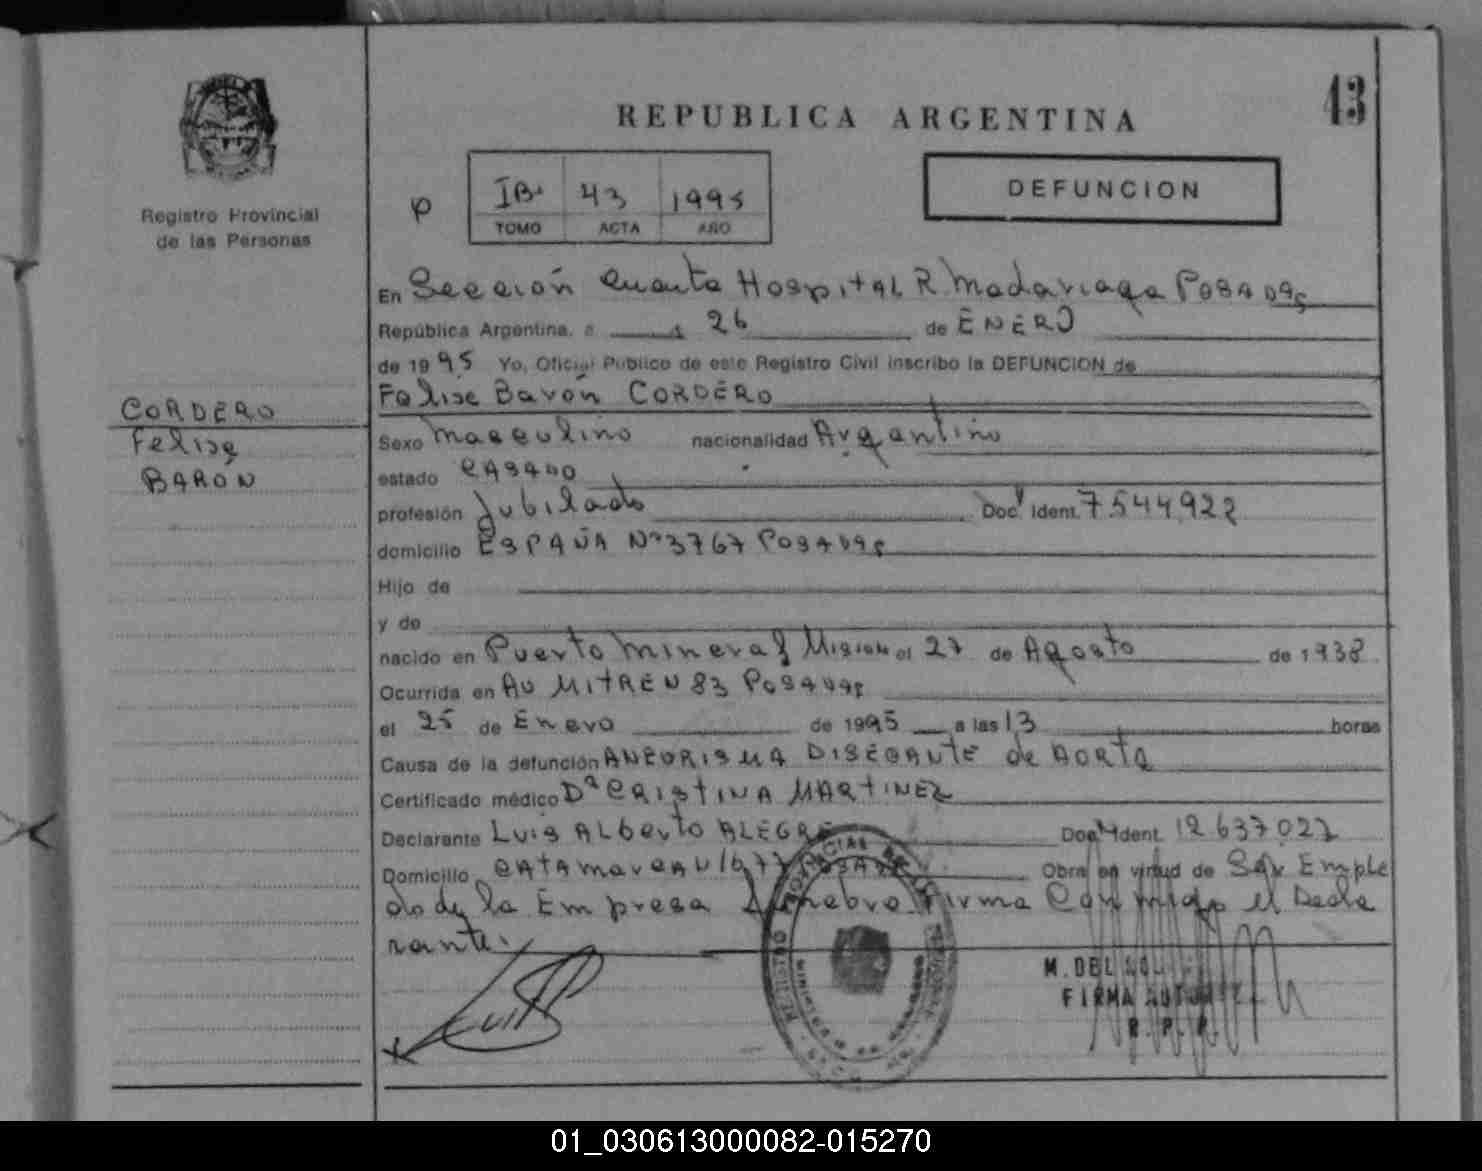 43
REPUBLICA ARGENTINA
DEFUNCION
P
IB. 43 1995
TOMO ACTA AÑO
Registro Provincial
de las Personas
CORDERO
Felise
BARON
En Sección Cuarta Hospital R. Madariaga Posadas
República Argentina, a 26 de ENERO
de 1995 Yo, Oficial Público de este Registro Civil inscribo la DEFUNCION de
Felise Barón CORDERO
Sexo masculino nacionalidad Argentino
estado casado
profesión Jubilado Doc. Ident. 7.544.922
domicilio ESPAÑA Nº 3767 Posadas
Hijo de
y de
nacido en Puerto Mineral Mision el 27 de Agosto de 1938
Ocurrida en AV MITRE N 83 Posadas
el 25 de Enero de 1995 a las 13 horas
Causa de la defunción ANEURISMA DISECANTE de AORTA
Certificado médico Dª CRISTINA MARTINEZ
Declarante Luis ALberto ALEGRE Doc. Ident. 12.637.027
Domicilio CATAmarCA Obra en virtud de Ser Emple
ado de la Empresa Firma Conmigo el Decla
rante.
M. DEL
FIRMA
R. P. P.
01_030613000082-015270